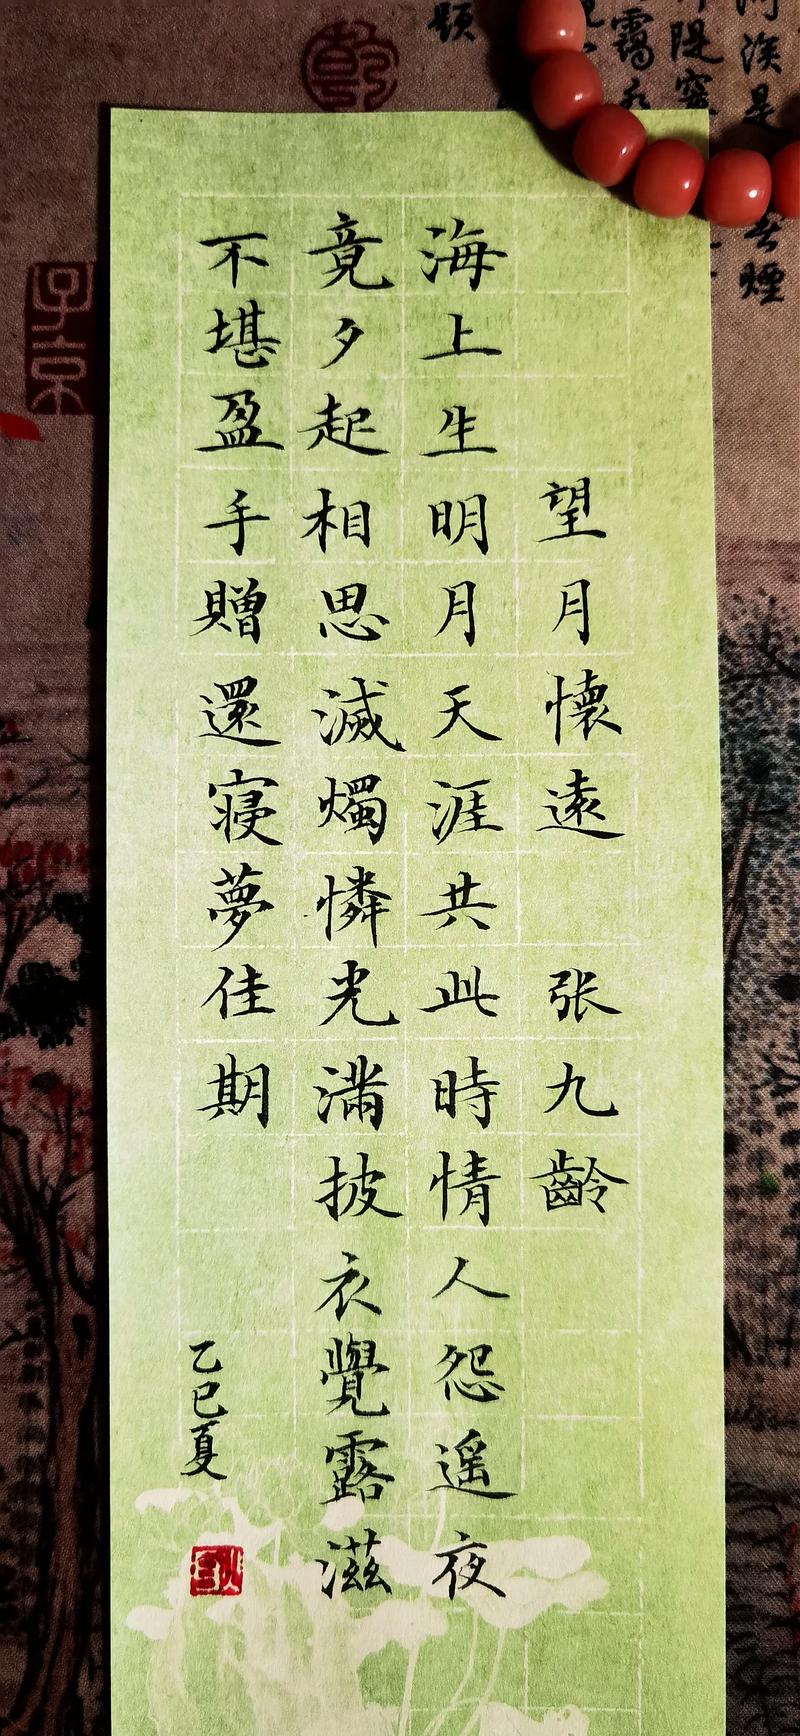 望月懷遠 张九齡
海上生明月天涯共此時情人怨遥夜
竟夕起相思滅燭憐光滿披衣覺露滋
不堪盈手贈還寢夢佳期
乙巳夏
子京
乾
題